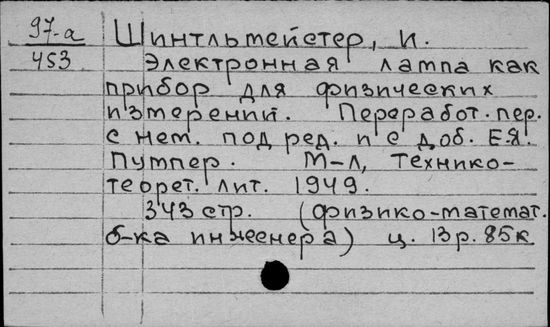 97-а
453
Шинтльмейстер, И.
Электронная лампа как
прибор для физических
измерений. Переработ. пер.
с нем. под ред. и с доб. Е.Я.
Пумпер. М-Л, Технико-
теорет. лит. 1949.
343 стр. (физико-математ.
б-ка инженера) ц. 13 р. 85 к